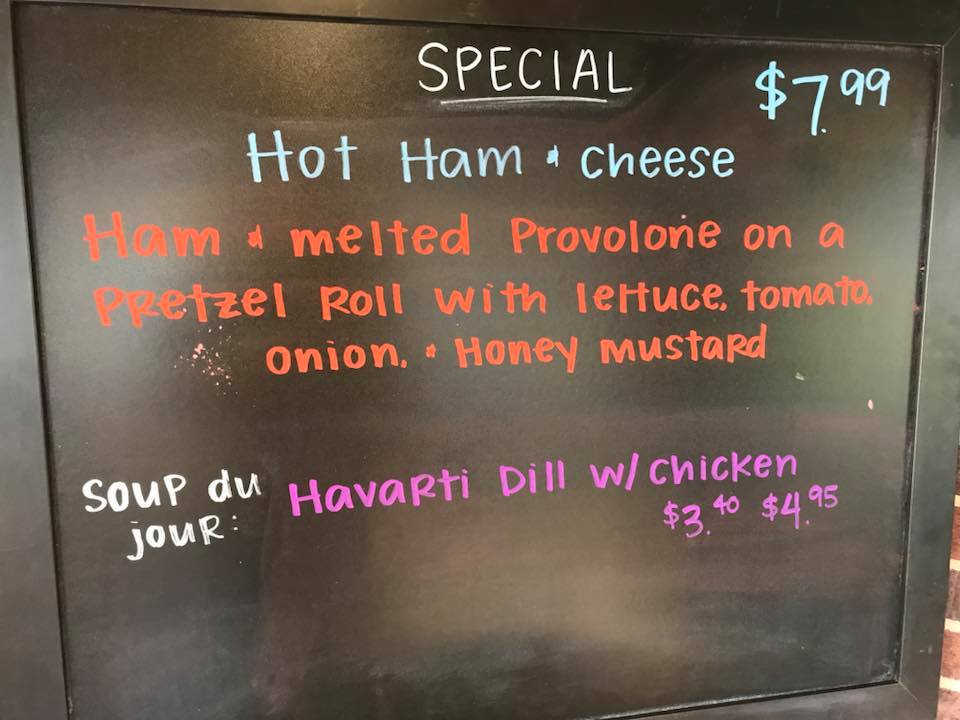 SPECIAL
$7.99
Hot Ham & Cheese
Ham & melted Provolone on a
Pretzel Roll with lettuce, tomato,
onion, & Honey mustard
Soup du jour: Havarti Dill w/ chicken
$3.40 $4.95